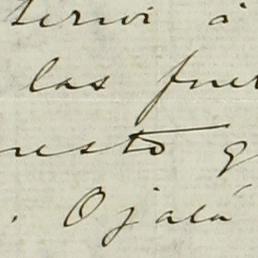 servi á
las fuer
uesto q
. Ojalá